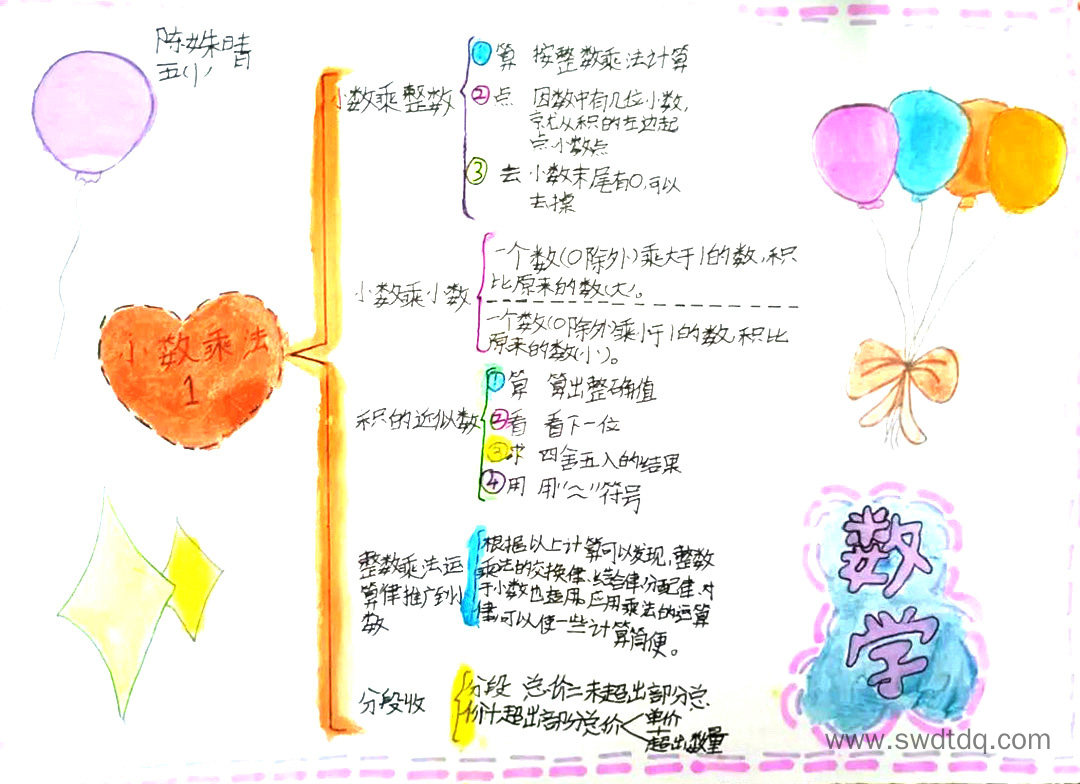 陈姝晴
五(1)
小数乘法
1
小数乘整数
①算 按整数乘法计算
②点 因数中有几位小数,
就从积的左边起
点小数点
③ 去 小数末尾有0,可以
去掉
小数乘小数
一个数(0除外)乘大于1的数,积
比原来的数(大)。
一个数(0除外)乘小于1的数,积比
原来的数(小)。
积的近似数
①算 算出整确值
②看 看下一位
③求 四舍五入的结果
④用 用"≈"符号
整数乘法运
算律推广到小
数
根据以上计算可以发现,整数
乘法的交换律、结合律、分配律、对
于小数也适用,应用乘法的运算
律可以使一些计算简便。
分段收
分段 总价=未超出部分总
价+超出部分总价
单价
超出数量
数
学
www.swdtdq.com